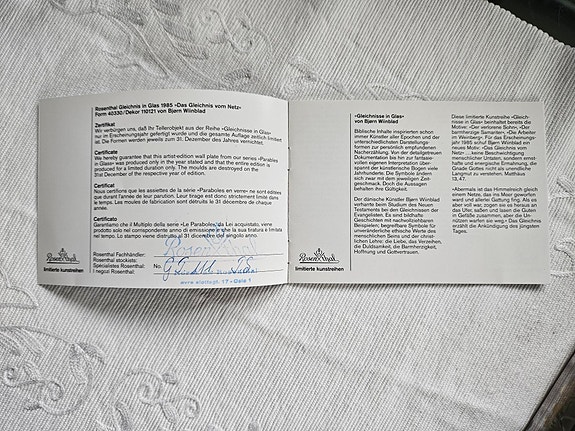 Rosenthal Gleichnis in Glas 1985 »Das Gleichnis vom Netz«
Form 40330/Dekor 110121 von Bjørn Wiinblad
Zertifikat
Wir verbürgen uns, daß Ihr Tellerobjekt aus der Reihe »Gleichnisse in Glas«
nur im Erscheinungsjahr gefertigt wurde und die gesamte Auflage zeitlich limitiert
ist. Die Formen werden jeweils zum 31. Dezember des Jahres vernichtet.
Certificate
We hereby guarantee that this artist-edition wall plate from our series »Parables
in Glass« was produced only in the year stated and that the entire edition is
produced for a limited duration only. The moulds are destroyed on the
31st December of the respective year of edition.
Certificat
Nous certifions que les assiettes de la série »Paraboles en verre« ne sont éditées
que durant l'année de leur parution. Leur tirage est donc strictement limité dans
le temps. Les moules de fabrication sont détruits le 31 décembre de chaque
année.
Certificato
Garantiamo che il Multiplo della serie »Le Parabole« da Lei acquistato, viene
prodotto solo nel corrispondente anno di emissione e che la sua tiratura è limitata
nel tempo. Lo stampo viene distrutto al 31 dicembre del singolo anno.
Rosenthal Fachhändler:
Rosenthal stockists:
Spécialistes Rosenthal:
I negozi Rosenthal:
No.
Rosenthal
limitierte kunstreihen
»Gleichnisse in Glas«
von Bjørn Wiinblad
Biblische Inhalte inspirierten schon
immer Künstler aller Epochen und
der unterschiedlichsten Darstellungs-
formen zur persönlich empfundenen
Nacherzählung. Von der detailgetreuen
Dokumentation bis hin zur fantasie-
vollen eigenen Interpretation über-
spannt der künstlerische Bogen viele
Jahrhunderte. Die Symbole ändern
sich zwar mit dem jeweiligen Zeit-
geschmack. Doch die Aussagen
behalten ihre Gültigkeit.
Der dänische Künstler Bjørn Wiinblad
verharrte beim Studium des Neuen
Testaments bei den Gleichnissen der
Evangelisten. Es sind bildhafte
Geschichten mit nachvollziehbaren
Beispielen; begreifbare Symbole für
unveränderliche ethische Werte des
menschlichen Seins und der christ-
lichen Lehre: die Liebe, das Verzeihen,
die Duldsamkeit, die Barmherzigkeit,
Hoffnung und Gottvertrauen.
Rosenthal
limitierte kunstreihen
Diese limitierte Kunstreihe »Gleich-
nisse in Glas« beinhaltet bereits die
Motive: »Der verlorene Sohn«, »Der
barmherzige Samariter«, »Die Arbeiter
im Weinberg«. Für das Erscheinungs-
jahr 1985 schuf Bjørn Wiinblad ein
neues Motiv: »Das Gleichnis vom
Netz«, keine Beschwichtigung
menschlicher Untaten, sondern ernst-
hafte und energische Ermahnung, die
Gnade Gottes nicht als unendliche
Langmut zu verstehen. Matthäus
13, 47.
»Abermals ist das Himmelreich gleich
einem Netze, das ins Meer geworfen
ward und allerlei Gattung fing. Als es
aber voll war, zogen sie es heraus an
das Ufer, saßen und lasen die Guten
in Gefäße zusammen, aber die Un-
nützen warfen sie weg« Das Gleichnis
erzählt die Ankündigung des jüngsten
Tages.